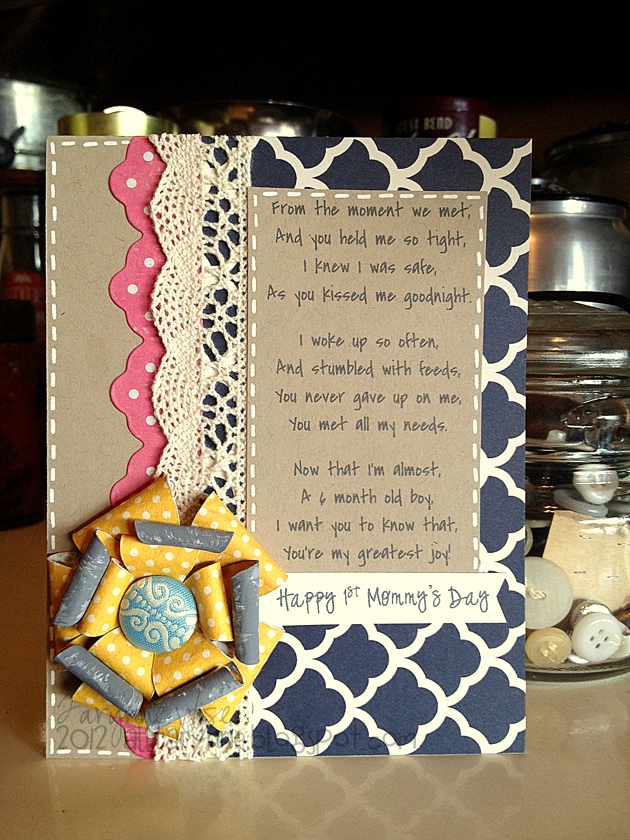 EST BEND
From the moment we met,
And you held me so tight,
I knew I was safe,
As you kissed me goodnight.
I woke up so often,
And stumbled with feeds,
You never gave up on me,
You met all my needs.
Now that I'm almost,
A 6 month old boy,
I want you to know that,
You're my greatest joy!
Happy 1st Mommy's Day
2012
blogspot.com